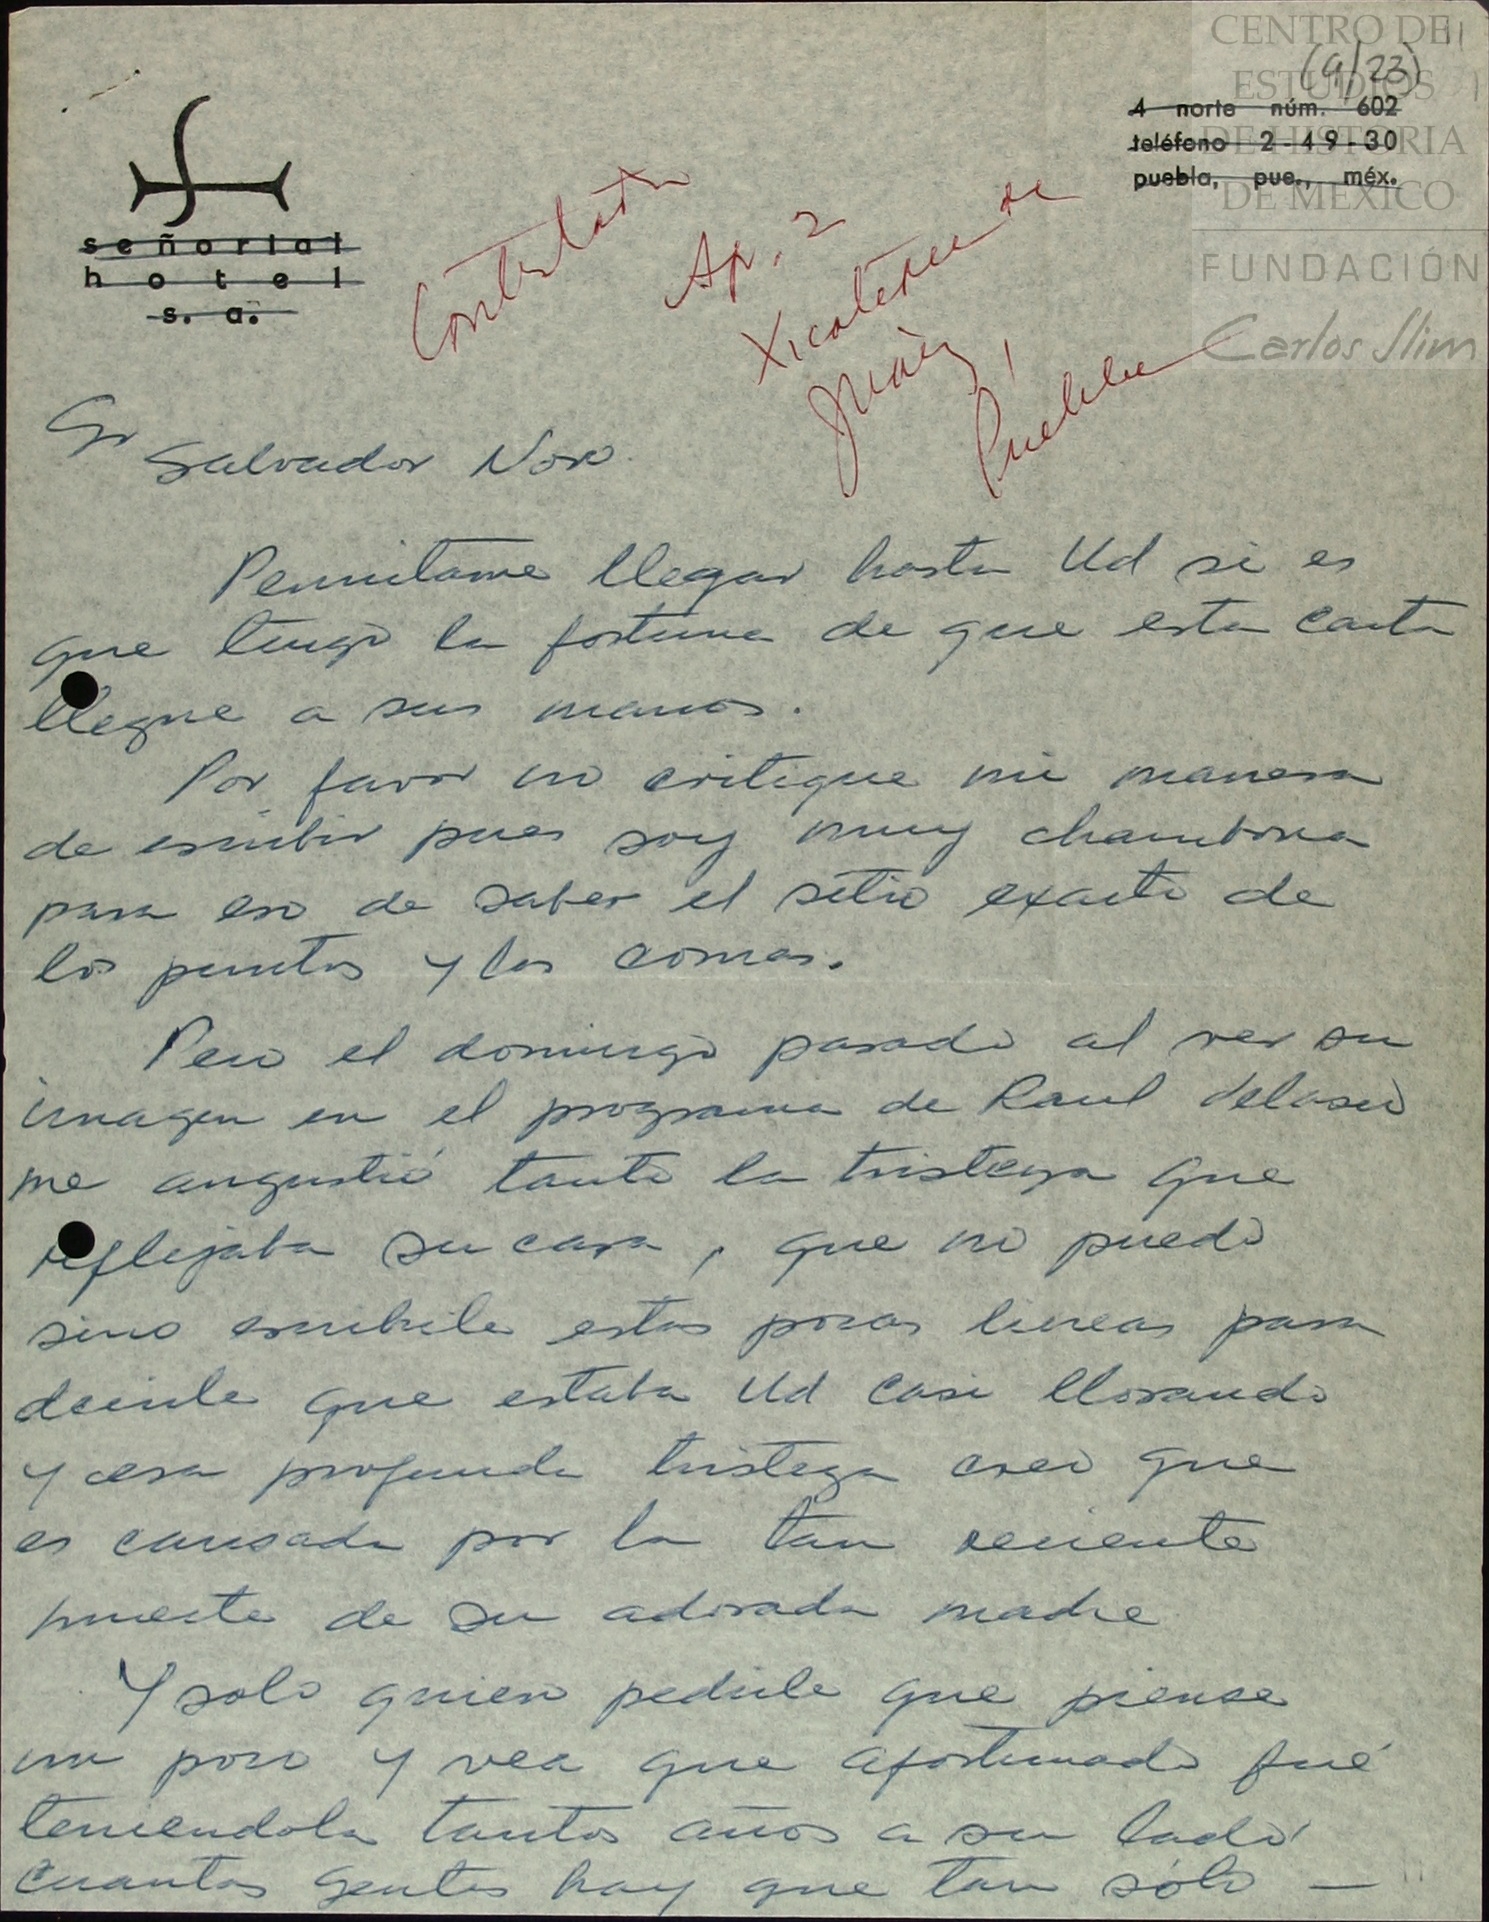 CENTRO DE
ESTUDIOS
DE HISTORIA
DE MEXICO
FUNDACIÓN
Carlos Slim
(9/23)
4 norte núm. 602
teléfono 2-49-30
puebla, pue., méx.
señorial
hotel
s. a.
Ap. 2
Xicotepec de
Juárez,
Puebla
Sr
Salvador Novo.
Permitame llegar hasta Ud si es
que tengo la fortuna de que esta carta
llegue a sus manos.
Por favor no critique mi manera
de escribir pues soy muy chambona
para eso de saber el sitio exacto de
los puntos y las comas.
Pero el domingo pasado al ver su
imagen en el programa de Raul Velasco
me angustió tanto la tristeza que
reflejaba su cara, que no puedo
sino escribirle estas pocas lineas para
decirle que estaba Ud casi llorando
y esa profunda tristeza creo que
es causada por la tan reciente
muerte de su adorada madre
Y solo quiero pedirle que piense
un poco y vea que afortunado fué
teniendola tantos años a su lado
cuantas gentes hay que tan sólo —